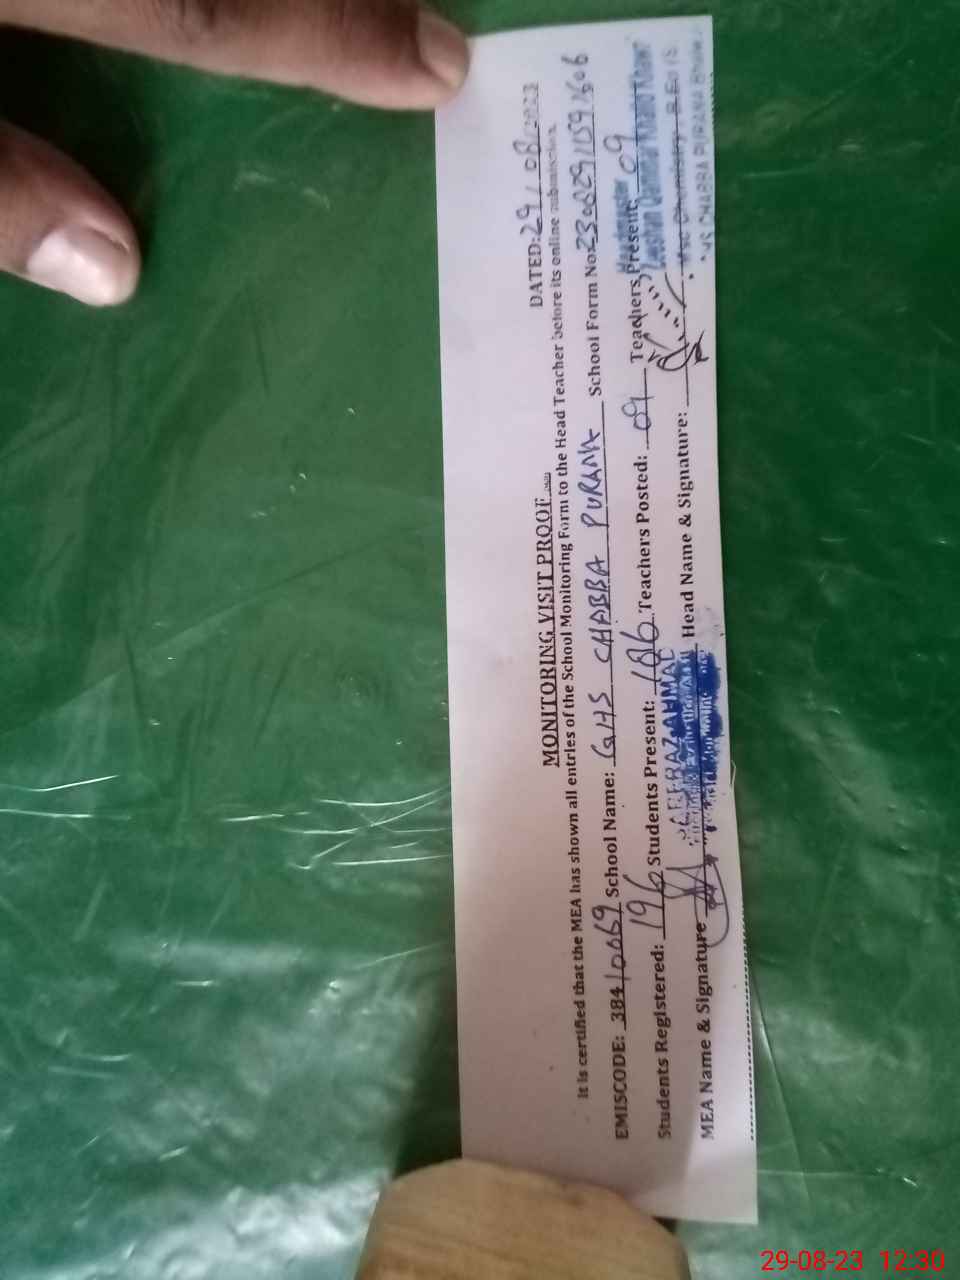 MONITORING VISIT PROOF
DATED: 29/08/2023
It is certified that the MEA has shown all entries of the School Monitoring Form to the Head Teacher before its online submission.
EMISCODE: 38410069 School Name: GHS CHABBA PURANA School Form No: 23082910591606
Students Registered: 196 Students Present: 186 Teachers Posted: 09 Teachers Present: 09
MEA Name & Signature Head Name & Signature:
SARFRAZ AHMAD
Headmaster
Zeeshan Qammar Khalid Khawar
Msc Chemistry
CHABBA PURANA
29-08-23 12:30